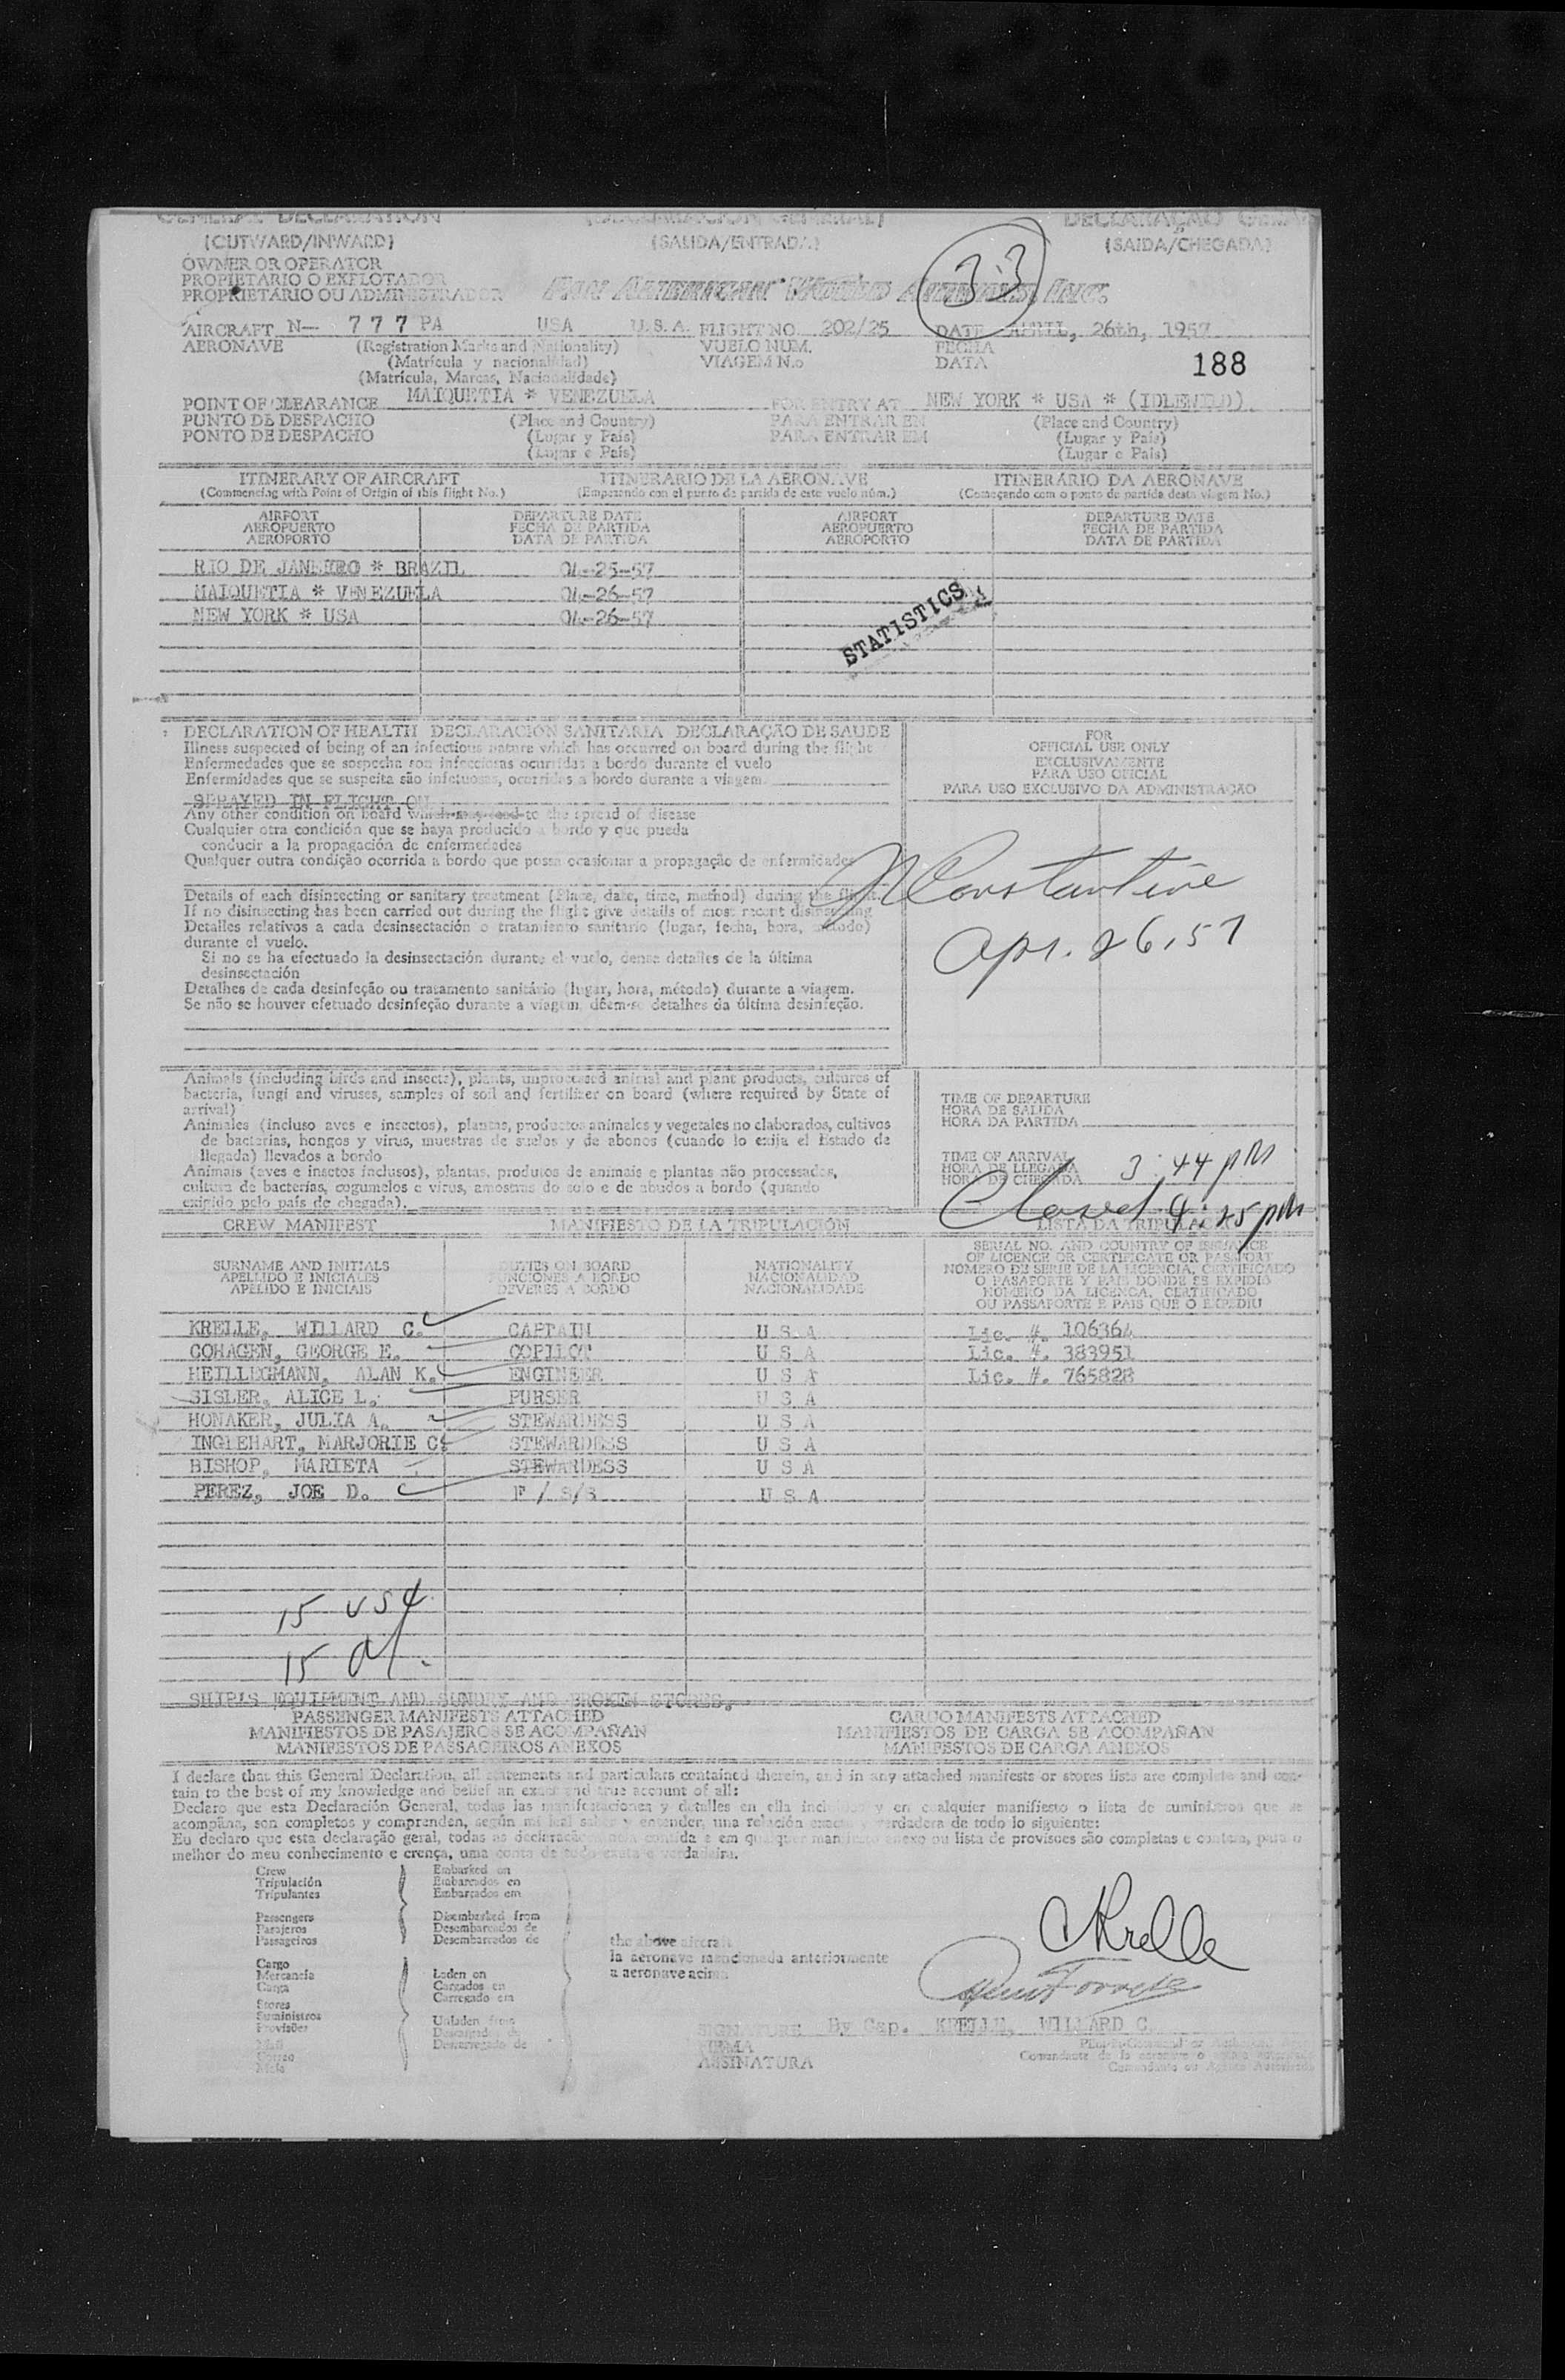 GENERAL DECLARATION (DECLARACION GENERAL) DECLARAÇÃO GERAL
(OUTWARD/INWARD) (SALIDA/ENTRADA) (SAIDA/CHEGADA)
OWNER OR OPERATOR
PROPIETARIO O EXPLOTADOR
PROPRIETÁRIO OU ADMINISTRADOR PAN AMERICAN WORLD AIRWAYS, INC.
33
AIRCRAFT N— 777 PA USA U.S.A. FLIGHT NO. 202/25 DATE APRIL, 26th, 1957
AERONAVE (Registration Marks and Nationality) VUELO NUM. FECHA
(Matrícula y nacionalidad) VIAGEM N.o DATA 188
(Matrícula, Marcas, Nacionalidade)
POINT OF CLEARANCE MAIQUETIA * VENEZUELA FOR ENTRY AT NEW YORK * USA * (IDLEWILD)
PUNTO DE DESPACHO (Place and Country) PARA ENTRAR EN (Place and Country)
PONTO DE DESPACHO (Lugar y País) PARA ENTRAR EM (Lugar y País)
(Lugar e País) (Lugar e País)
ITINERARY OF AIRCRAFT ITINERARIO DE LA AERONAVE ITINERÁRIO DA AERONAVE
(Commencing with Point of Origin of this flight No.) (Empezando con el punto de partida de este vuelo núm.) (Começando com o ponto de partida desta viagem No.)
AIRPORT DEPARTURE DATE AIRPORT DEPARTURE DATE
AEROPUERTO FECHA DE PARTIDA AEROPUERTO FECHA DE PARTIDA
AEROPORTO DATA DE PARTIDA AEROPORTO DATA DE PARTIDA
RIO DE JANEIRO * BRAZIL 04-25-57
MAIQUETIA * VENEZUELA 04-26-57
NEW YORK * USA 04-26-57
STATISTICS
DECLARATION OF HEALTH DECLARACION SANITARIA DECLARAÇÃO DE SAUDE
Illness suspected of being of an infectious nature which has occurred on board during the flight
Enfermedades que se sospecha son infecciosas ocurridas a bordo durante el vuelo
Enfermidades que se suspeita são infetuosas, ocorridas a bordo durante a viagem.
SPRAYED IN FLIGHT ON
Any other condition on board which may lead to the spread of disease
Cualquier otra condición que se haya producido a bordo y que pueda
conducir a la propagación de enfermedades
Qualquer outra condição ocorrida a bordo que possa ocasionar a propagação de enfermidades
Details of each disinsecting or sanitary treatment (Place, date, time, method) during the flight.
If no disinsecting has been carried out during the flight give details of most recent disinsecting
Detalles relativos a cada desinsectación o tratamiento sanitario (lugar, fecha, hora, método)
durante el vuelo.
Si no se ha efectuado la desinsectación durante el vuelo, dense detalles de la última
desinsectación
Detalhes de cada desinfeção ou tratamento sanitário (lugar, hora, método) durante a viagem.
Se não se houver efetuado desinfeção durante a viagem, dêem-se detalhes da última desinfeção.
FOR
OFFICIAL USE ONLY
EXCLUSIVAMENTE
PARA USO OFICIAL
PARA USO EXCLUSIVO DA ADMINISTRAÇÃO
Constantine
Apr. 26, 57
Animals (including birds and insects), plants, unprocessed animal and plant products, cultures of
bacteria, fungi and viruses, samples of soil and fertilizer on board (where required by State of
arrival)
Animales (incluso aves e insectos), plantas, productos animales y vegetales no elaborados, cultivos
de bacterias, hongos y virus, muestras de suelos y de abonos (cuando lo exija el Estado de
llegada) llevados a bordo
Animais (aves e insetos inclusos), plantas, produtos de animais e plantas não processados,
cultura de bacterias, cogumelos e virus, amostras do solo e de abudos a bordo (quando
exigido pelo país de chegada).
TIME OF DEPARTURE
HORA DE SALIDA
HORA DA PARTIDA
TIME OF ARRIVAL
HORA DE LLEGADA 3:44 pm
HORA DE CHEGADA
Closed 4:25 pm
CREW MANIFEST MANIFIESTO DE LA TRIPULACIÓN LISTA DA TRIPULAÇÃO
SURNAME AND INITIALS DUTIES ON BOARD NATIONALITY SERIAL NO. AND COUNTRY OF ISSUANCE
APELLIDO E INICIALES FUNCIONES A BORDO NACIONALIDAD OF LICENCE OR CERTIFICATE OR PASSPORT
APELIDO E INICIAIS DEVERES A BORDO NACIONALIDADE NÚMERO DE SERIE DE LA LICENCIA, CERTIFICADO
O PASAPORTE Y PAIS DONDE SE EXPIDIÓ
NÚMERO DA LICENÇA, CERTIFICADO
OU PASSAPORTE E PAIS QUE O EXPEDIU
KRELLE, WILLARD C. CAPTAIN U S A Lic. #. 106364
COHAGEN, GEORGE E. COPILOT U S A Lic. #. 383951
HEILLEGMANN, ALAN K. ENGINEER U S A Lic. #. 765828
SISLER, ALICE L. PURSER U S A
HONAKER, JULIA A. STEWARDESS U S A
INGLEHART, MARJORIE C. STEWARDESS U S A
BISHOP, MARIETA STEWARDESS U S A
PEREZ, JOE D. F/S/S U S A
15 USC
15
SHIP'S EQUIPMENT AND SUNDRY AND BROKEN STORES.
PASSENGER MANIFESTS ATTACHED CARGO MANIFESTS ATTACHED
MANIFIESTOS DE PASAJEROS SE ACOMPAÑAN MANIFIESTOS DE CARGA SE ACOMPAÑAN
MANIFESTOS DE PASSAGEIROS ANEXOS MANIFESTOS DE CARGA ANEXOS
I declare that this General Declaration, all statements and particulars contained therein, and in any attached manifests or stores lists are complete and con-
tain to the best of my knowledge and belief an exact and true account of all:
Declaro que esta Declaración General, todas las manifestaciones y detalles en ella incluidos y en cualquier manifiesto o lista de suministros que se
acompaña, son completos y comprenden, según mi leal saber y entender, una relación exacta y verdadera de todo lo siguiente:
Eu declaro que esta declaração geral, todas as declarações contida e em qualquer manifesto anexo ou lista de provisões são completas e contem, para o
melhor do meu conhecimento e crença, uma conta de tudo exata e verdadeira.
Crew Embarked on
Tripulación Embarcados en
Tripulantes Embarcados em
Passengers Disembarked from
Pasajeros Desembarcados de
Passageiros Desembarcados de
the above aircraft
la aeronave mencionada anteriormente
a aeronave acima
Cargo
Mercancía Laden on
Carga Cargados en
Carregado em
Stores
Suministros Unladen from
Provisões Descargados de
Mail Descarregado de
Correo
Mala
CKrelle
SIGNATURE By Cap. KRELLE, WILLARD C.
FIRMA
ASSINATURA
Comandante de la aeronave o
Comandante ou Agente Autorizado